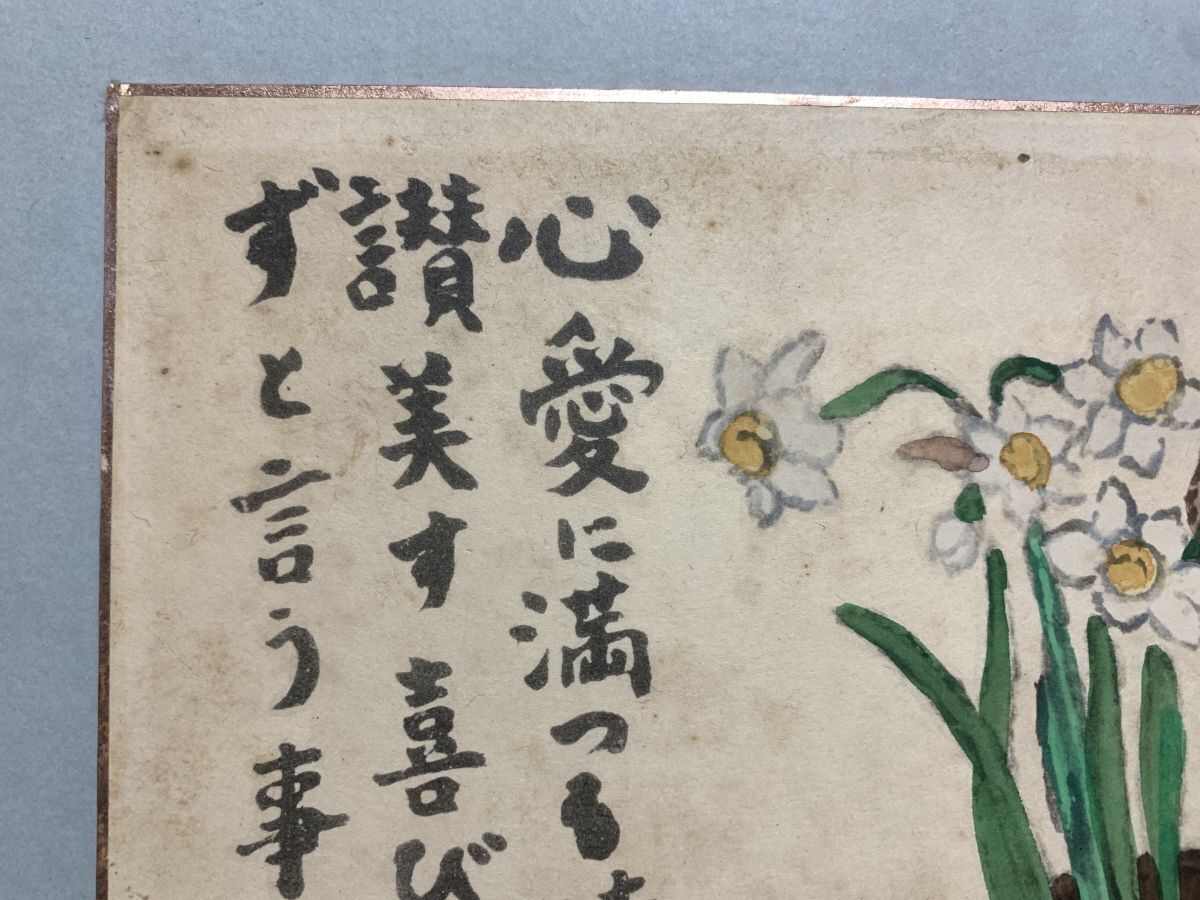 心愛に満つる
讃美す喜び
ずと言う事